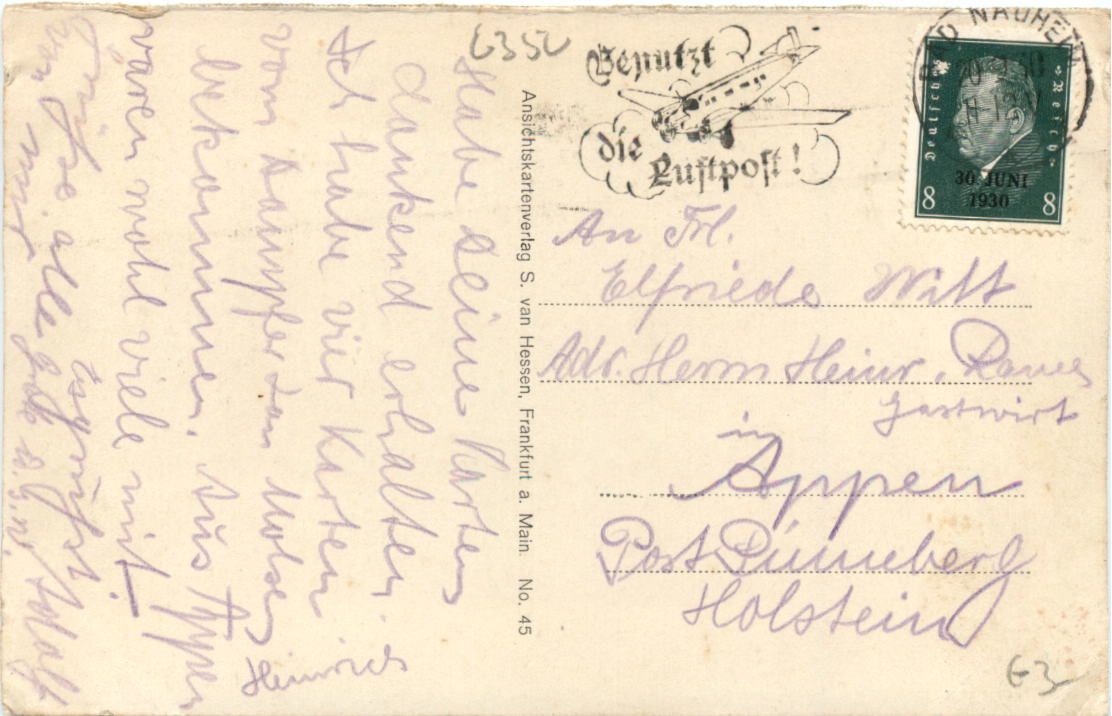 6350
Benutzt
die
Luftpost!
BAD NAUHEIM
Deutsches Reich
30. JUNI
1930
8 8
Habe Deine Karten
dankend erhalten.
Ich habe vier Karten
vom Dampfer
bekommen. Aus Appen
waren wohl viele mit.
Grüße alle
von mir
Heinrich
Ansichtskartenverlag S. van Hessen, Frankfurt a. Main. No. 45
An Frl.
Elfriede Witt
Adr. Herrn Heinr.
Gastwirt
in
Appen
Post Pinneberg
Holstein
63